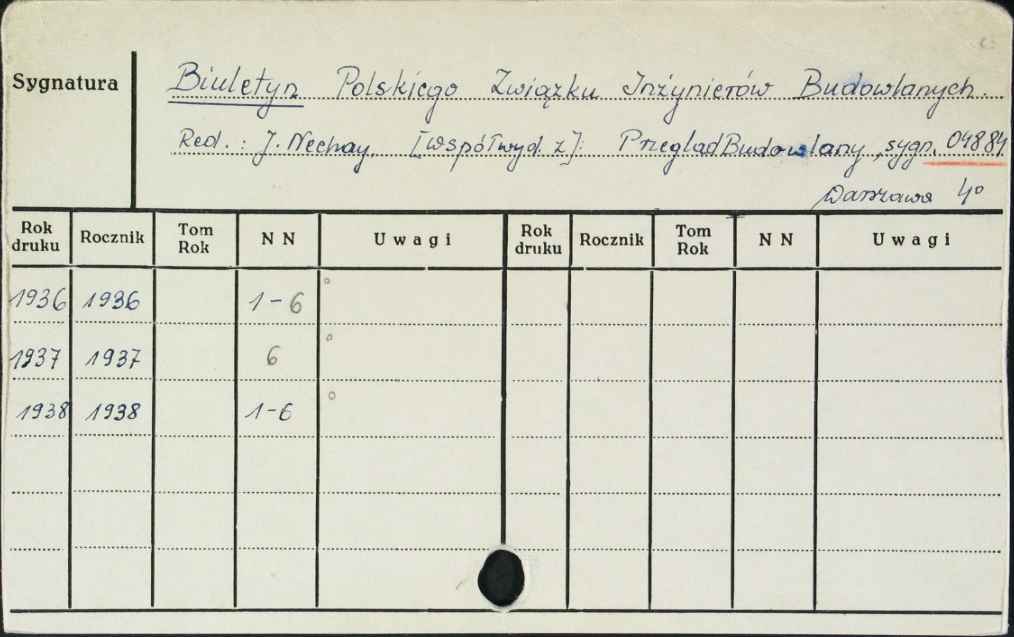 Sygnatura
Biuletyn Polskiego Związku Inżynierów Budowlanych.
Red.: J. Nechay. [współwyd. z]: Przegląd Budowlany, sygn. 04884
Warszawa 4°
Rok druku Rocznik Tom Rok NN Uwagi Rok druku Rocznik Tom Rok NN Uwagi
1936 1936 1-6
1937 1937 6
1938 1938 1-6